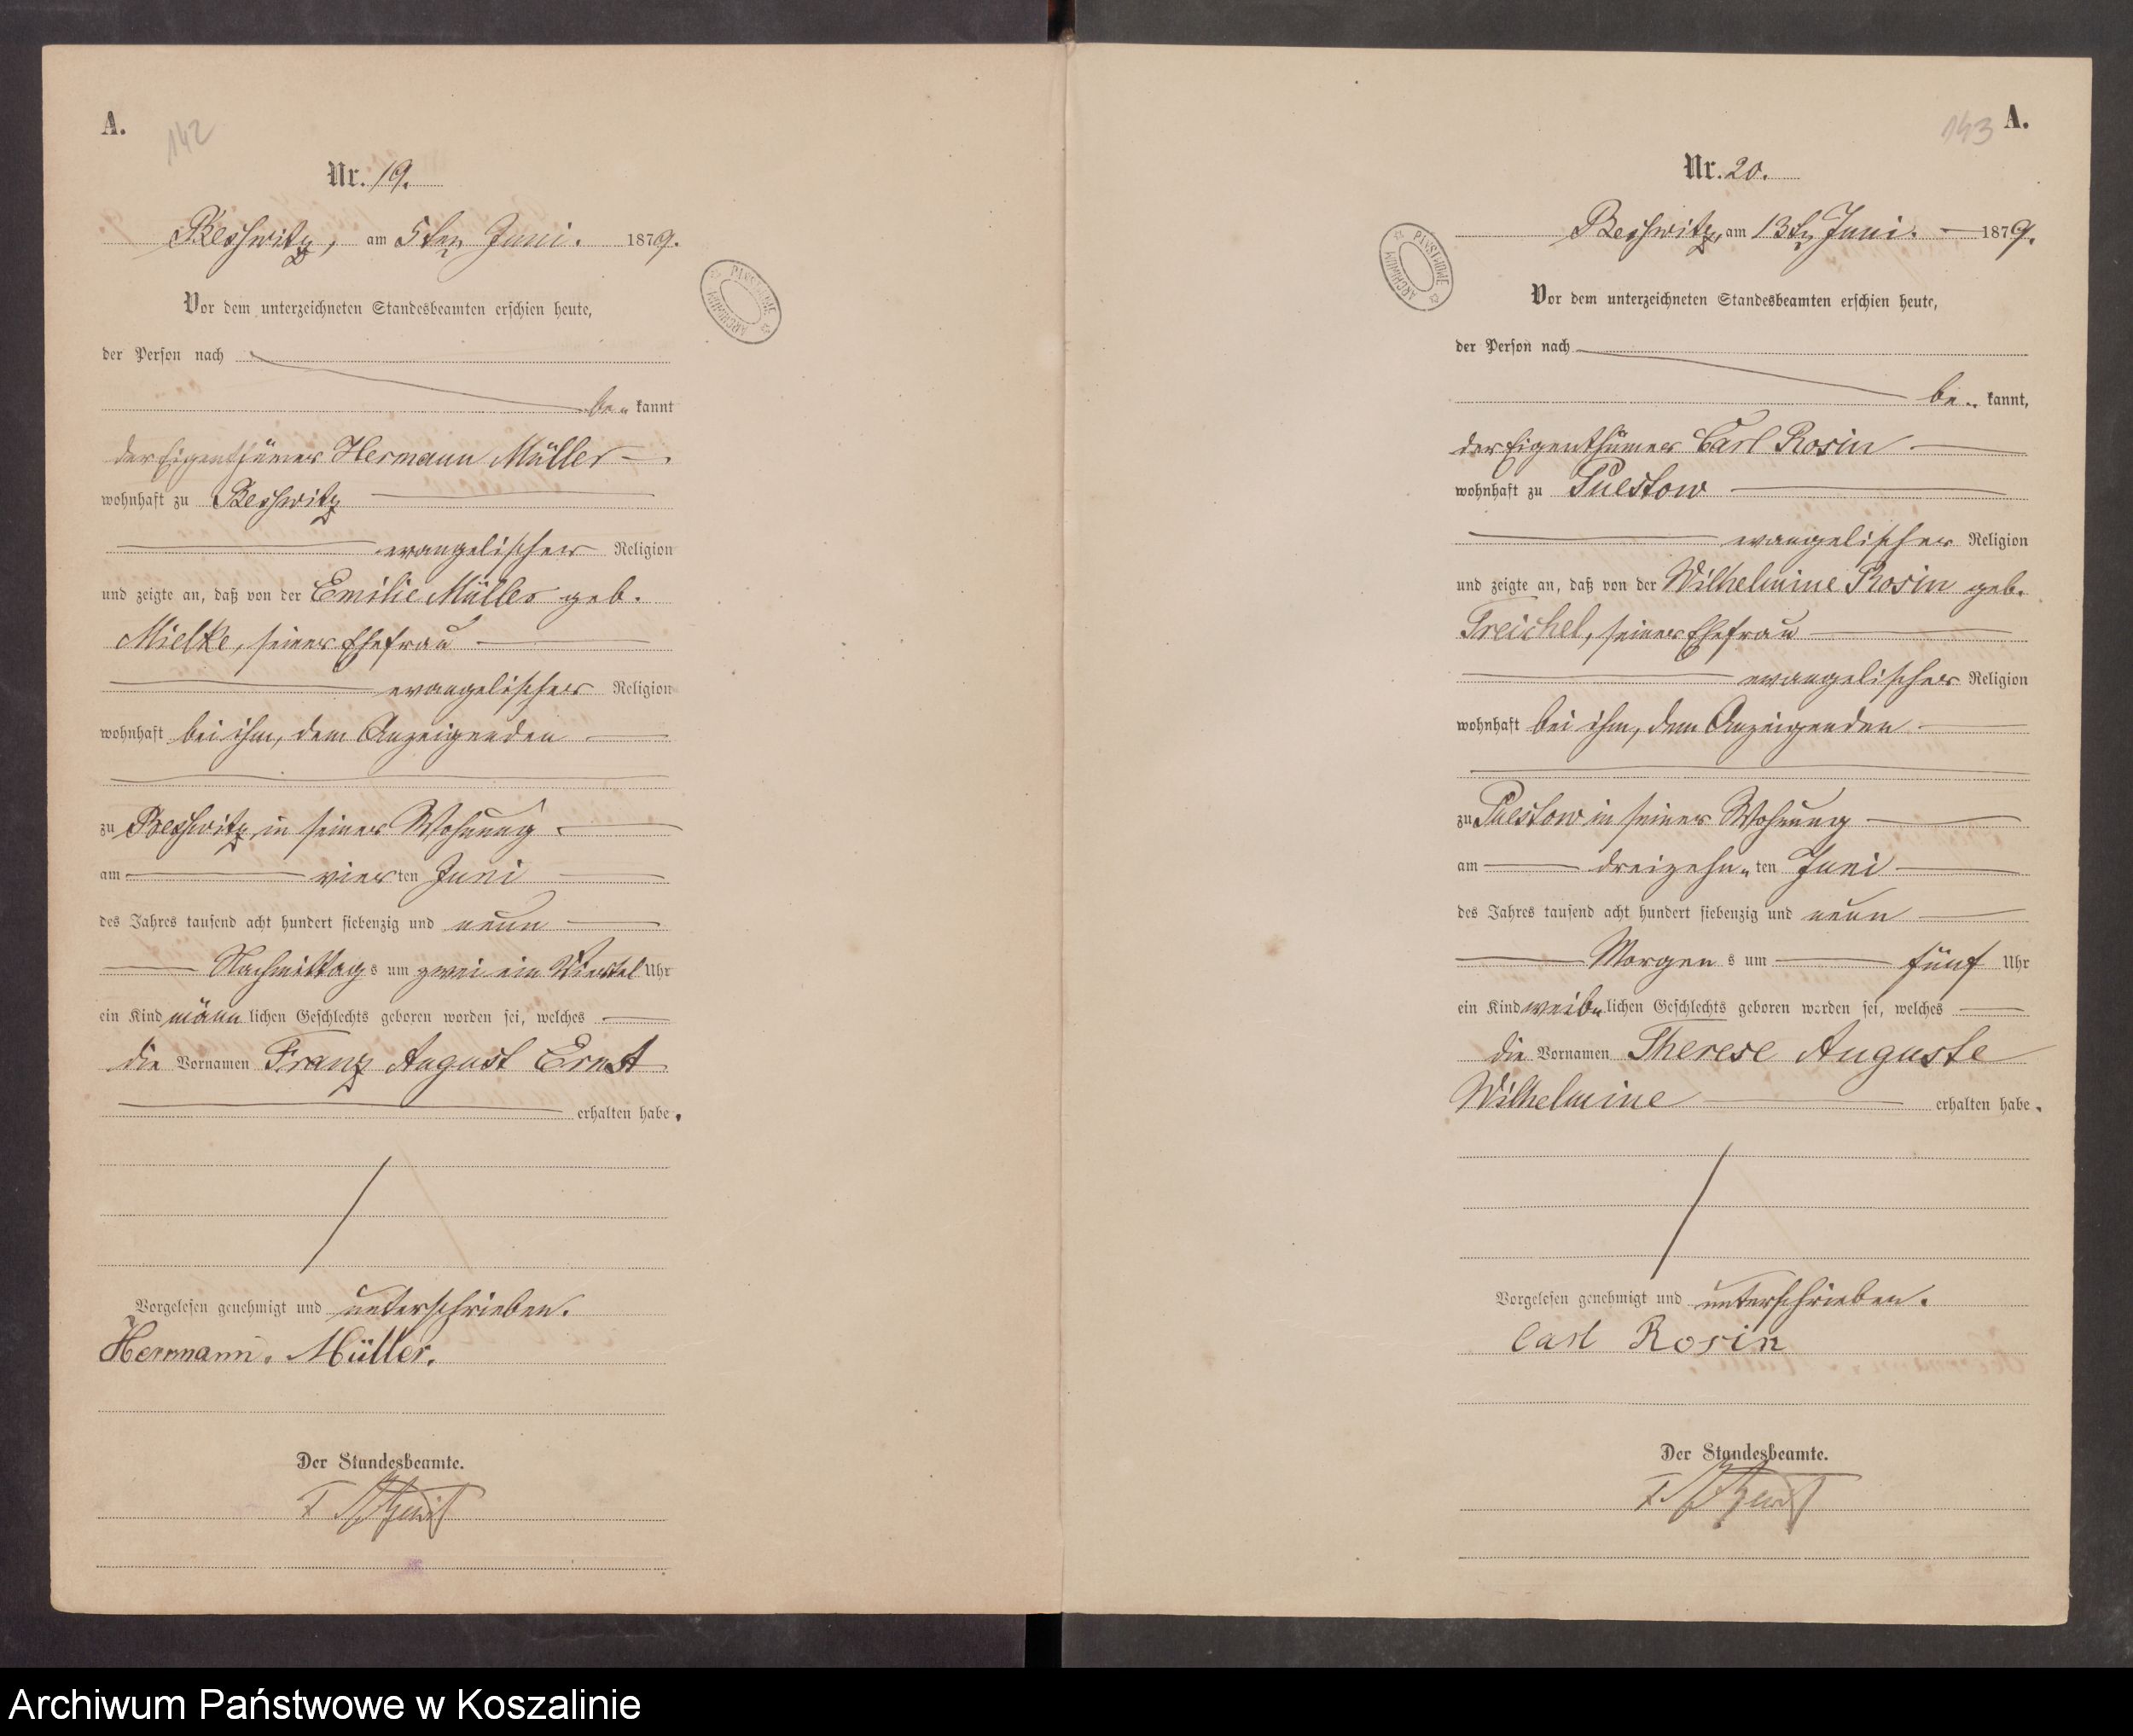 A.
142
Nr. 19.
Beßwitz, am 5ten Juni. 1879.
PAŃSTWOWE ARCHIWUM
Vor dem unterzeichneten Standesbeamten erschien heute,
der Person nach
be= kannt
der Eigenthümer Hermann Müller
wohnhaft zu Beßwitz
evangelischer Religion
und zeigte an, daß von der Emilie Müller geb.
Mielke, seiner Ehefrau
evangelischer Religion
wohnhaft bei ihm, dem Anzeigenden
zu Beßwitz in seiner Wohnung
am vierten Juni
des Jahres tausend acht hundert siebenzig und neun
Nachmittags um zwei ein Viertel Uhr
ein Kind männlichen Geschlechts geboren worden sei, welches
die Vornamen Franz August Ernst
erhalten habe.
Vorgelesen genehmigt und unterschrieben.
Hermann. Müller.
Der Standesbeamte.
143
A.
Nr. 20.
Beßwitz, am 13ten Juni. 1879.
PAŃSTWOWE ARCHIWUM
Vor dem unterzeichneten Standesbeamten erschien heute,
der Person nach
be= kannt,
der Eigenthümer Carl Rosin
wohnhaft zu Puestow
evangelischer Religion
und zeigte an, daß von der Wilhelmine Rosin geb.
Treichel, seiner Ehefrau
evangelischer Religion
wohnhaft bei ihm, dem Anzeigenden
zu Puestow in seiner Wohnung
am dreizehn=ten Juni
des Jahres tausend acht hundert siebenzig und neun
Morgens um fünf Uhr
ein Kind weib=lichen Geschlechts geboren worden sei, welches
die Vornamen Therese Auguste
Wilhelmine erhalten habe.
Vorgelesen genehmigt und unterschrieben.
Carl Rosin
Der Standesbeamte.
Archiwum Państwowe w Koszalinie